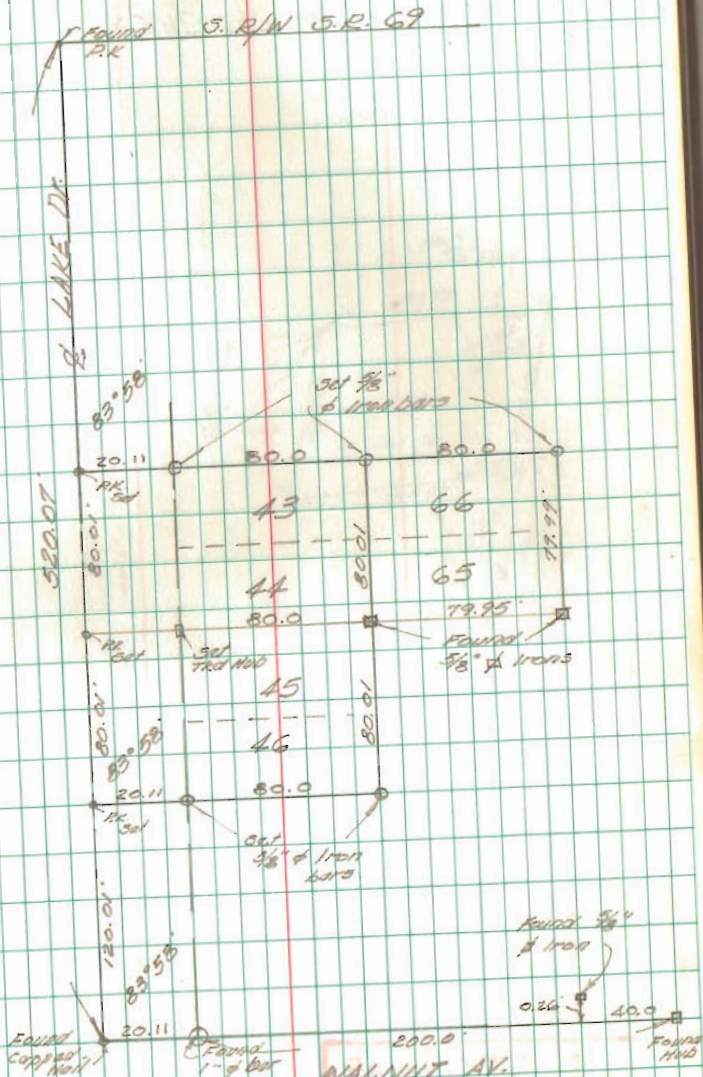 Found
P.K
S. R/W S.R. 69
℄ LAKE Dr.
83°58'
Set 5/8"
ϕ Iron bars
20.11
80.0
80.0
P.K.
Set
43
66
520.07'
80.01'
80.01
79.99'
44
65
80.0
79.95'
P.K.
Set
Set
T'kd Hub
Found
5/8" ϕ Irons
45
80.01'
80.01
83°58'
46
20.11
80.0
P.K.
Set
Set
5/8" ϕ Iron
bars
120.01'
Found 5/8"
ϕ Iron
83°58'
0.26'
40.0
20.11
200.0'
Found
Capped
Nail
Found
1" ϕ bar
Found
Hub
WALNUT AV.